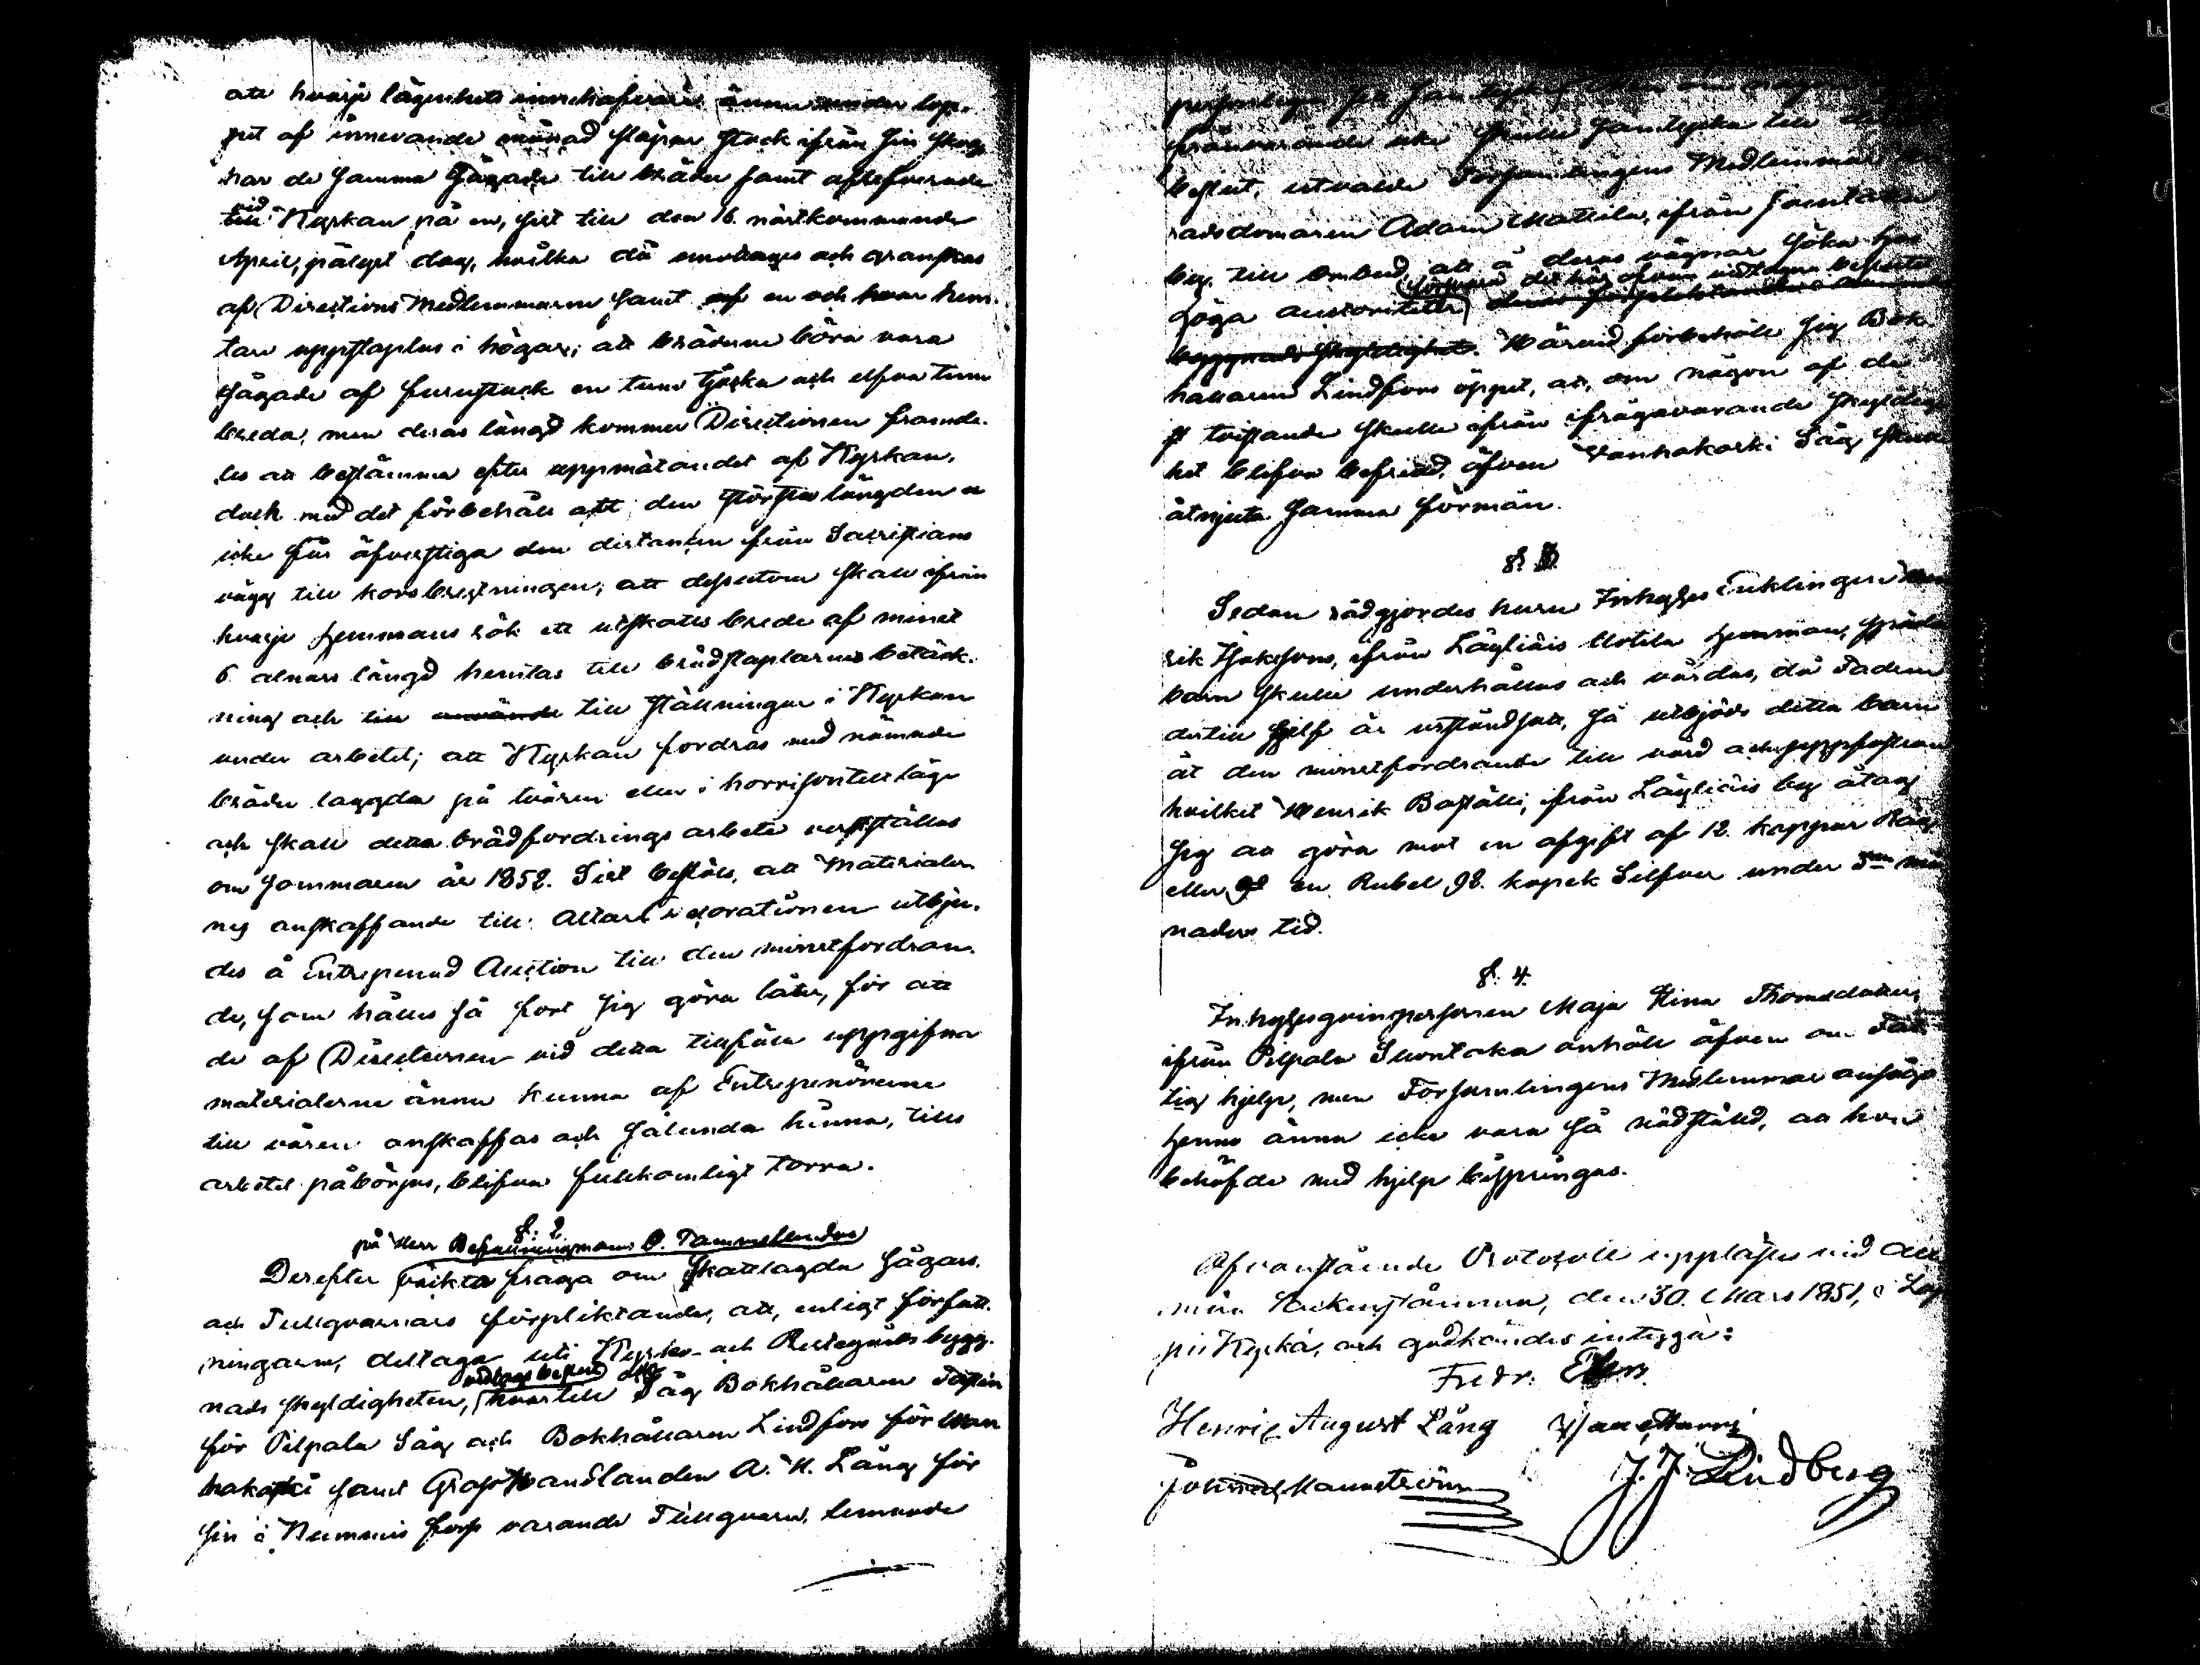 att hvarje lägenhets innehafvare ännu under lop-
pet af innevande månad släpar stock ifrån sin skog,
har de samma sågade till bräder samt aflefverade
vid Kyrkan på en, sist till den 16. nästkommande
April, pålyst dag, hvilka då emottages och granskas
af Directions Medlemmarne samt af en och hvar hem-
tare uppstaplas i högar; att bräderne böra vara
sågade af furustock en tum tjocka och elfva tum
breda, men deras längd kommer Directionen framde-
les att bestämma efter uppmätandet af Kyrkan,
dock med det förbehåll att den största längden
icke får öfverstiga den distansen från Sacristians
vägg till korsbrytningen; att dessutom skall ifrån
hvarje hemmans rök ett utskotts bräde af minst
6 alnars längd hemtas till brädstaplarnes betäck-
ning och till använde till ställningar i Kyrkan
under arbetet; att Kyrkan fordras med nämnde
bräder laggda på tvären eller i horrisontelt läge
och skall detta brädfordrings arbete verkställas
om sommaren år 1852. Sist beslöts, att Materialer-
nes anskaffande till Altar Decorationen utbju-
des å Entreprenad Auction till den minstfordran-
de, som hålles så fort sig göra låter, för att
de af Directionen vid detta tillfälle uppgifna
materialerne ännu kunna af Entreprenörerne
till våren anskaffas och sålunda hinna, tills
arbetet påbörjas, blifva fullkomligt torra.
§. 2
på Herr Befallningsman O. Tammelanders
Derefter väckta fråga om skattlagda Sågars
och Tullqvarnars förpliktande, att, enligt författ-
ningarne, deltaga uti Kyrko- och Prestegårds bygg-
nads skyldigheten,
för Pilpala Såg och Bokhållaren Lindfors för Wan
hakoski samt Grosshandlanden A. W. Lång för
sin i Nummis forss varande Tullqvarn, lemnade
frånvarande icke skulle samtycka till
beslut, utvalde Församlingens Medlemmar
radsdomaren Adam Mattila, ifrån
by, till Ombud, att å deras vägnar söka hos
höga auctoriteter
byggnads skyldighet. Härvid förbehöll sig Bok-
hållaren Lindfors öppet, att, om någon af de
tvistande skulle ifrån ifrågavarande skyldig
het blifva befriad, äfven Vanhakoski Såg skulle
åtnjuta samma förmån.
§. 3.
Sedan rådgjordes huru Inhyses Enklingen
rik Isaksons, ifrån Läyliäis Uotila hemman, späda
barn skulle underhållas och vårdas, då Fadern
dertill sjelf är urståndsatt, så utbjöds detta barn
åt den minstfordrande till vård och uppfostran
hvilket Henrik Baställi, ifrån Läyliäis by åtog
sig att göra mot en afgift af 12. kappar Råg
eller en Rubel 98. kopek Silfver under 3ne må
naders tid.
§. 4.
Inhyses qvinspersonen Maja Stina Thomsdotter,
ifrån Pilpala Suontaka anhöll äfven om Fat
tig hjelp, men Församlingens Medlemmar ansågo
henne ännu icke vara så nödställd, att hon
behöfde med hjelp bispringas.
Ofvanstående Protocoll upplästes vid All
män Sockenstämma, den 30. Mars 1851, i Lop
pis Kyrka, och godkändes intygga:
Fredr.
Henric August Lång
Johan Mannström
J. J. Lindberg